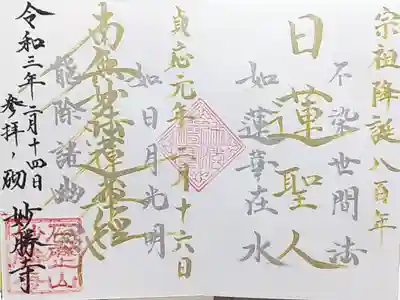 宗祖降誕八百年
不染世間法
日蓮聖人
如蓮華在水
貞応元年二月十六日
如日月光明
南無妙法蓮華經
能除諸幽冥
令和三年二月十四日
参拝ノ砌
妙勝寺